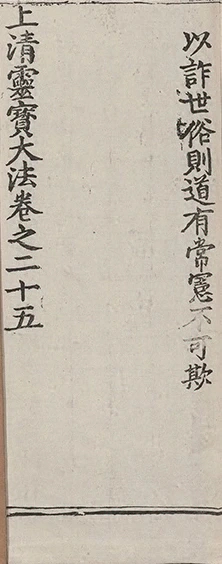 以詐世俗則道有常憲不可欺
上清靈寳大法卷之二十五